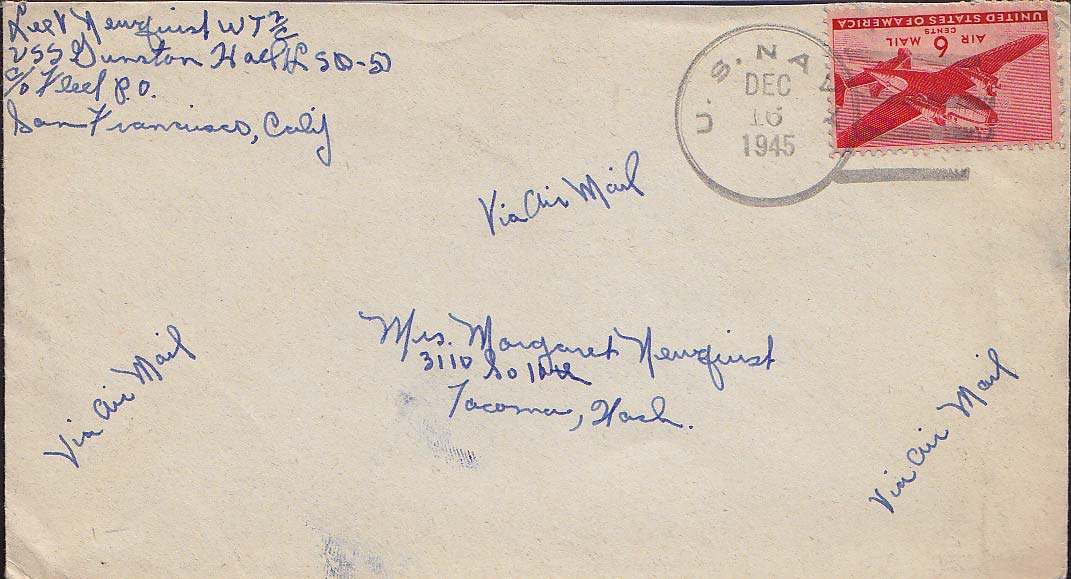 Lee V Newquist WT 2/c
USS Gunston Hall LSD-5
c/o Fleet P.O.
San Francisco, Calif
U.S. NAV
DEC
16
1945
UNITED STATES OF AMERICA
AIR 6 MAIL
CENTS
Via Air Mail
Mrs. Margaret Newquist
3110 So
Tacoma, Wash.
Via Air Mail
Via Air Mail